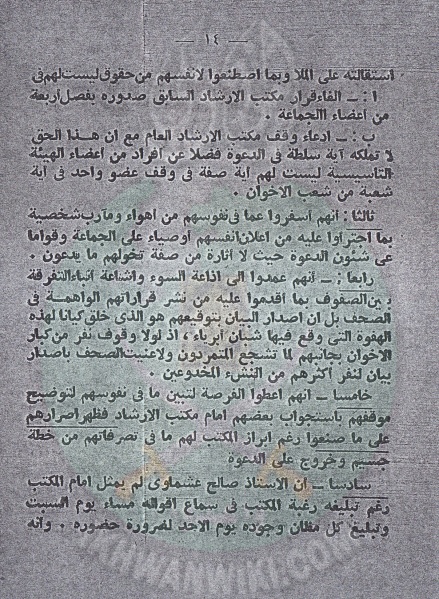 — ١٤ —
استقالته على الملا وبما اصطنعوا لانفسهم من حقوق ليست لهم فى
ا : ــ الغاء قرار مكتب الارشاد السابق صدوره بفصل أربعة
من أعضاء الجماعة .
ب : ــ ادعاء وقف مكتب الارشاد العام مع ان هذا الحق
لا تملكه أية سلطة فى الدعوة فضلا عن أفراد من أعضاء الهيئة
التأسيسية ليست لهم أية صفة فى وقف عضو واحد فى أية
شعبة من شعب الاخوان .
ثالثا : أنهم أسفروا عما فى نفوسهم من أهواء ومآرب شخصية
بما اجترأوا عليه من اعلان أنفسهم أوصياء على الجماعة وقواما
عى شئون الدعوة حيث لا أثارة من صفة تخولهم ما يدعون .
رابعا : ــ أنهم عمدوا الى اذاعة السوء واشاعة أنباء التفرقة
بين الصفوف بما أقدموا عليه من نشر قراراتهم الواهمة فى
الصحف بل ان اصدار البيان بتوقيعهم هو الذى خلق كيانا لهذه
الهفوة التى وقع فيها شبان أبرياء ، اذ لولا وقوف نفر من كبار
الاخوان بجانبهم لما تشجع المتمردون ولا عنيت الصحف باصدار
بيان لنفر أكثرهم من النشء المخدوعين .
خامسا ــ أنهم أعطوا الفرصة لتبين ما فى نفوسهم لتوضيح
موقفهم باستجواب بعضهم أمام مكتب الارشاد فظهر اصرارهم
على ما صنعوا رغم ابراز المكتب لهم ما فى تصرفاتهم من خطأ
جسيم وخروج على الدعوة
سادسا ــ ان الاستاذ صالح عشماوى لم يمثل أمام المكتب
رغم تبليغه رغبة المكتب فى سماع أقواله مساء يوم السبت
وتبليغ كل مظان وجوده يوم الاحد لضرورة حضوره . وأنه
IKHWANWIKI.COM